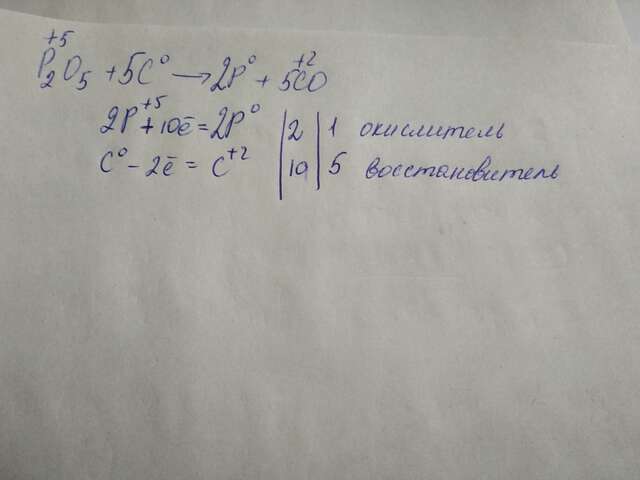 P₂⁺⁵O₅ + 5C⁰ → 2P⁰ + 5C⁺²O
2P⁺⁵ + 10ē = 2P⁰ | 2 | 1 окислитель
C⁰ - 2ē = C⁺² | 10 | 5 восстановитель